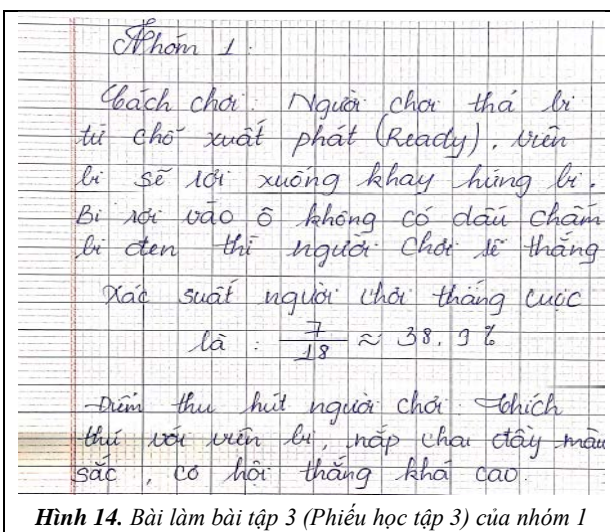 Nhóm 1:
Cách chơi: Người chơi thả bi
từ chỗ xuất phát (Ready), viên
bi sẽ rơi xuống khay hứng bi.
Bi rơi vào ô không có dấu chấm
bi đen thì người chơi sẽ thắng
Xác suất người chơi thắng cuộc
là : 7/18 ≈ 38,9%
Điểm thu hút người chơi: thích
thú với viên bi, nắp chai đầy màu
sắc, cơ hội thắng khá cao.
Hình 14. Bài làm bài tập 3 (Phiếu học tập 3) của nhóm 1